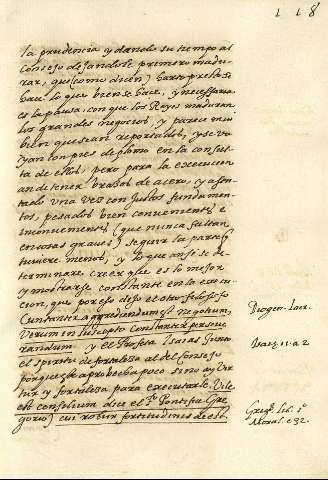 118
la prudencia y dandole su tiempo al
Consejo dejandole primero madu-
rar, que (como dicen) harto presto se
hace lo que bien se hace, y necessaria
es la pausa, con que los Reyes maduran
los grandes negocios, y parece mui
bien que sean reportados, y se va
yan con pies de plomo en la consul
ta de ellos, pero para la execucion
an de tener brasos de acero, y asen
tado una vez con justos fundamen
tos, pesados bien convenientes e
inconvenientes (que nunca faltan
en cosas graues) seguir la parte q
tuviere menos, y lo que ansi se de-
terminare creer que es lo mejor
y mostrarse constante en la execu
cion, que por eso dijo el otro filosofo
Cunctanter aggrediendum negotium,
Verum in suscepto constanter perseve
randum y el Profeta Isaias junto
el spiritu de fortaleza al del Consejo
porque aprobecha poco si no ay Vir
tud y fortaleza para executarle Vile
est consilium dice el Sto Pontifice Gre
gorio) cui robur fortitudinis deest.
Diogen. Laer.
Isai. 11. a 2
Greg. lib. 1º
Moral. c 32.